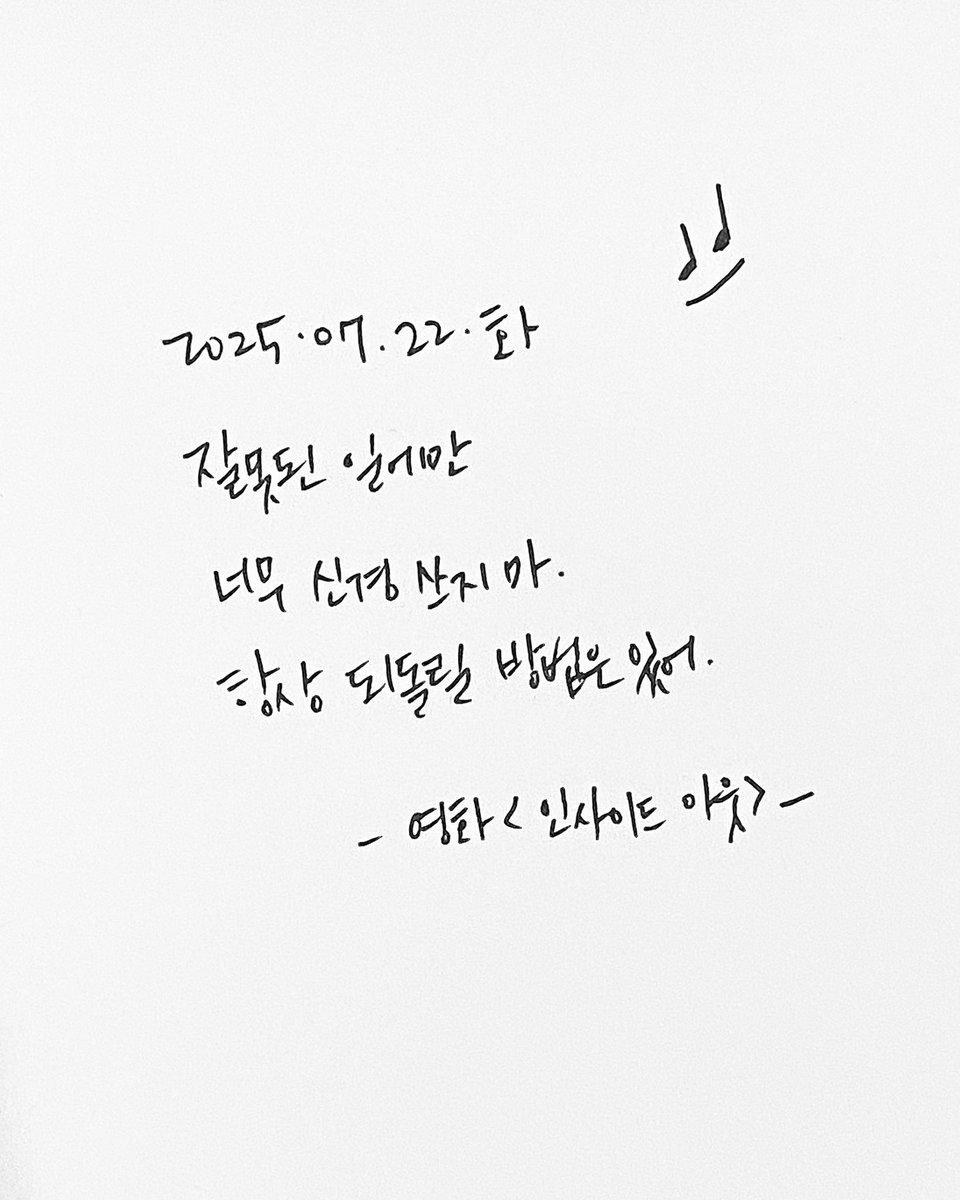 2025.07.22.화
잘못된 일에만
너무 신경 쓰지 마.
항상 되돌릴 방법은 있어.
- 영화 <인사이드 아웃> -